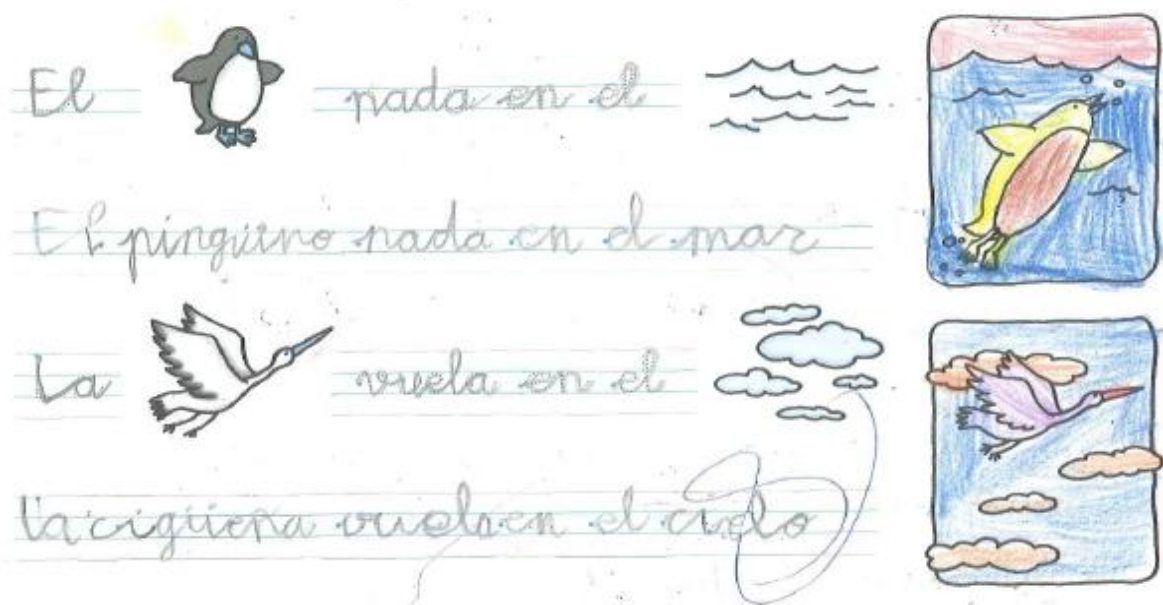 El nada en el
El pingüino nada en el mar
La vuela en el
La cigüeña vuela en el cielo